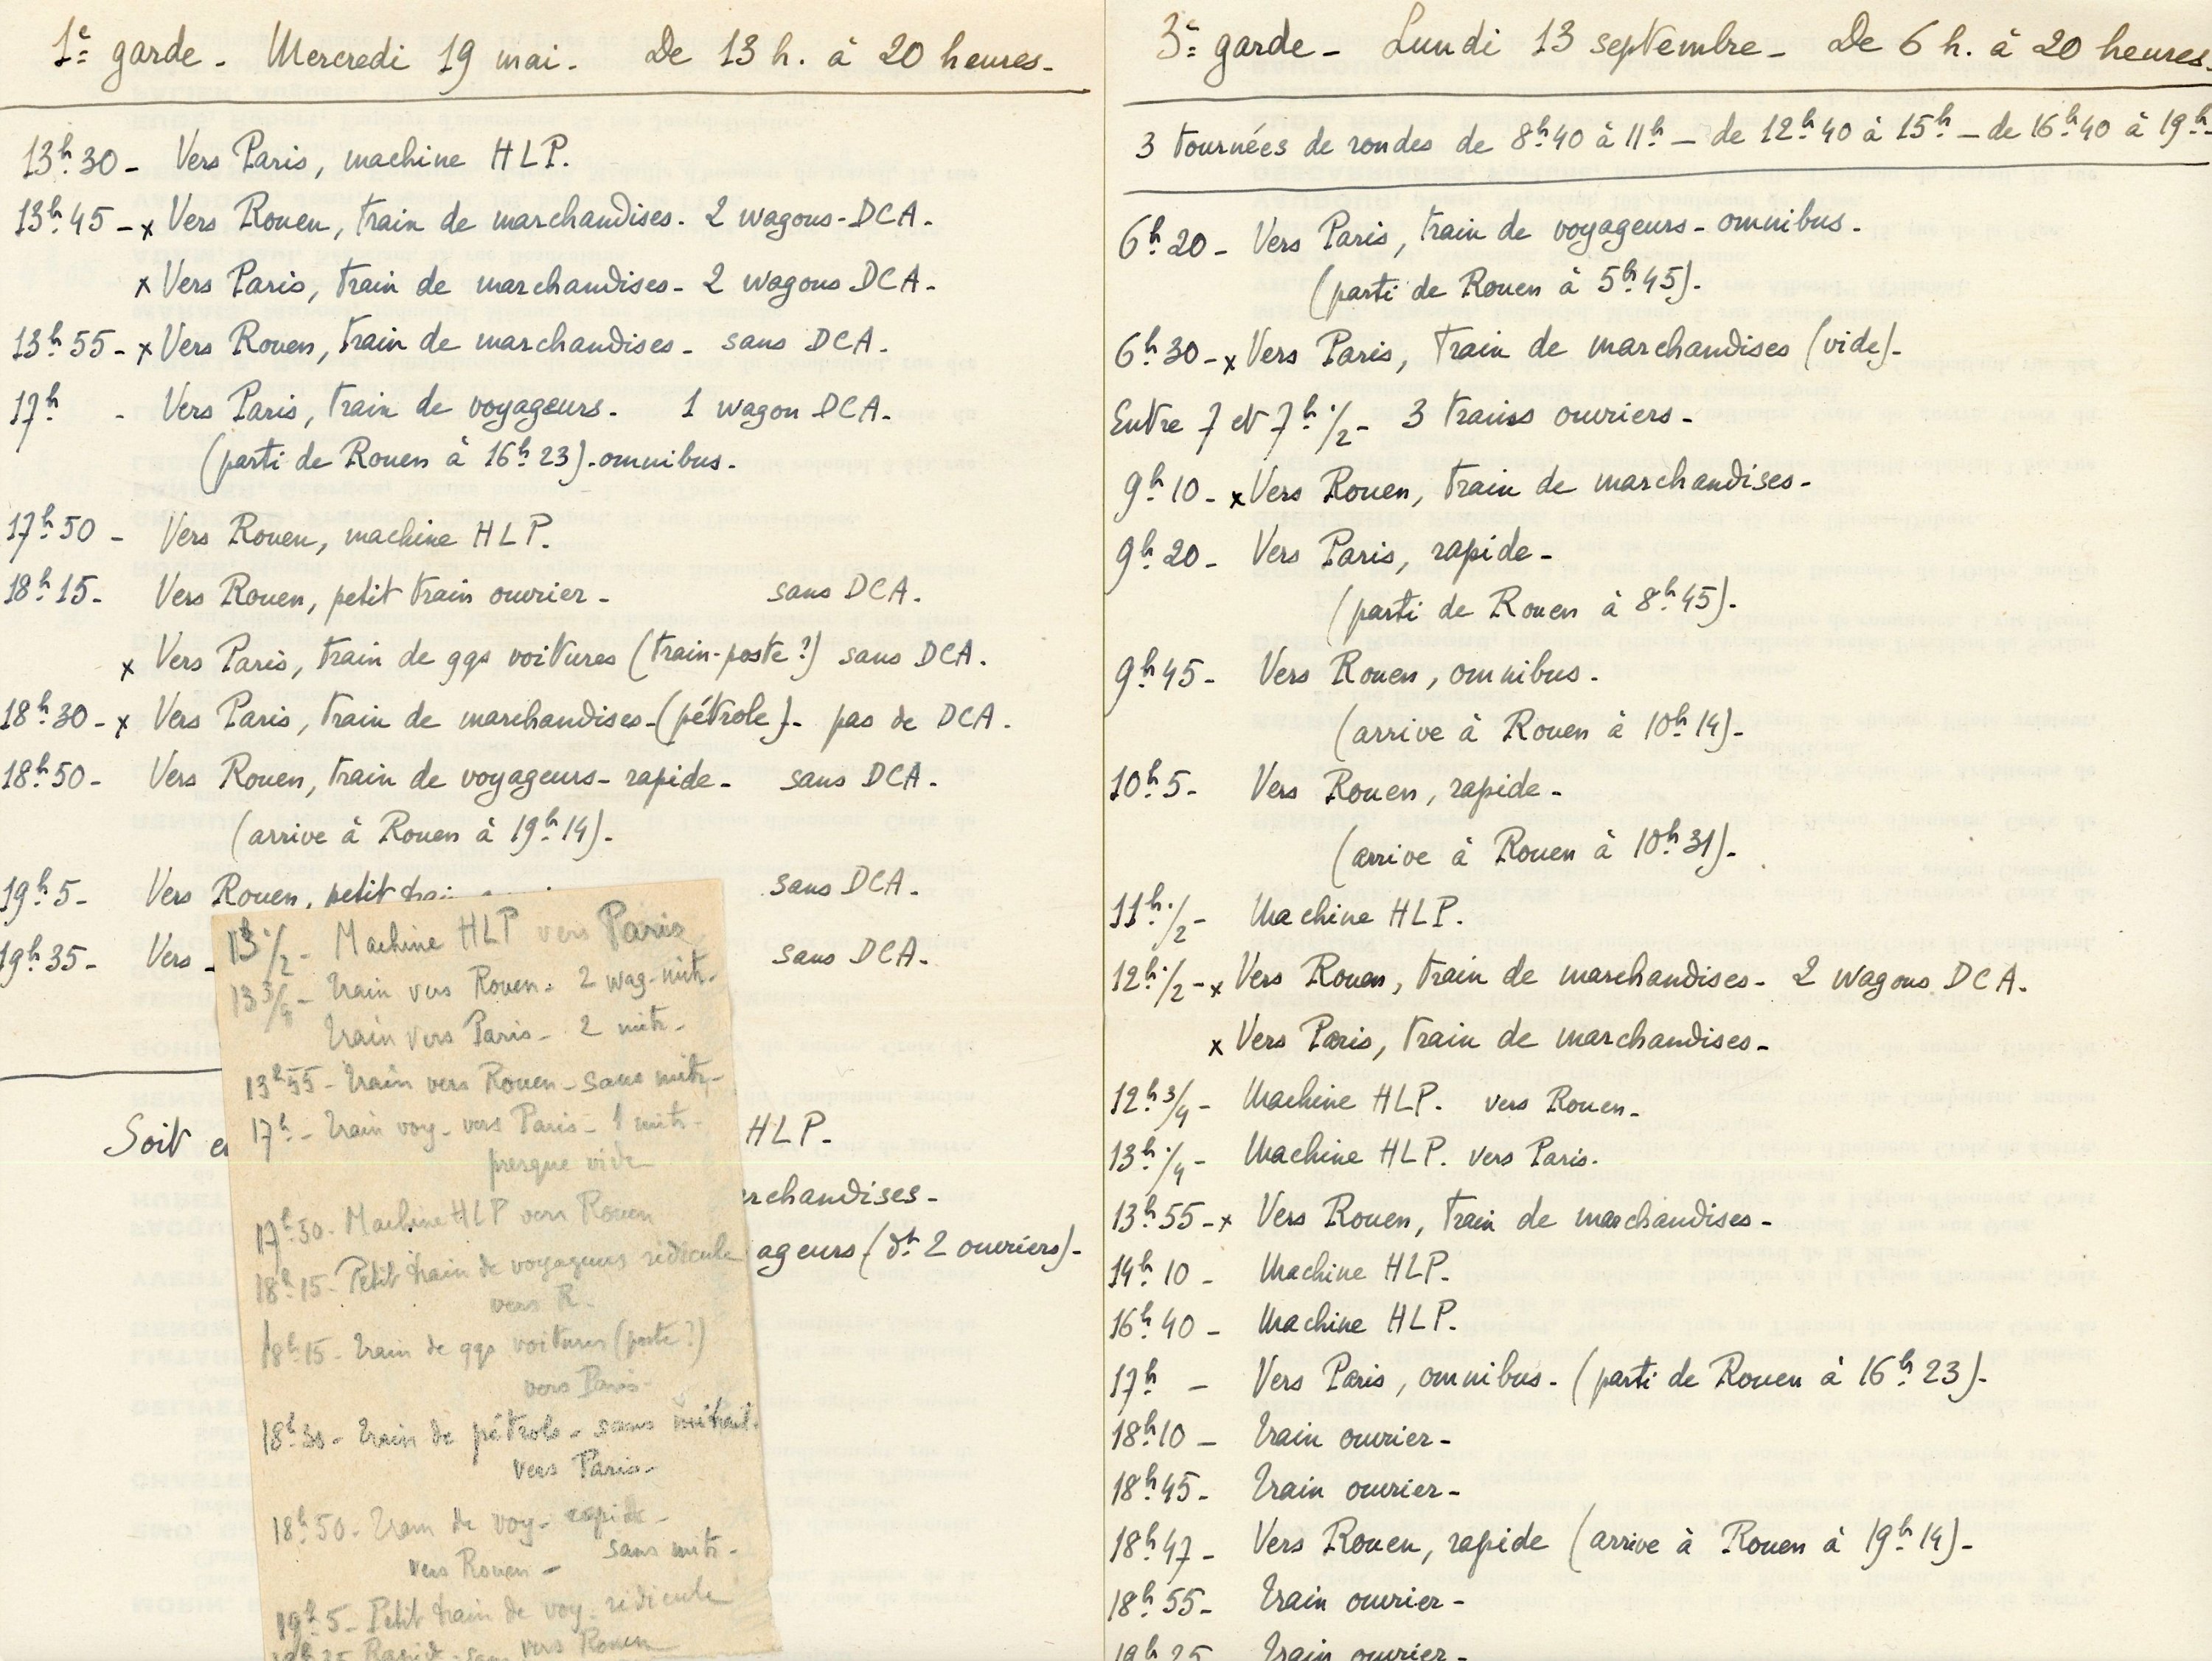 1è garde - Mercredi 19 mai - De 13 h. à 20 heures -
13h 30 - Vers Paris, machine HLP.
13h 45 - x Vers Rouen, train de marchandises - 2 wagons-DCA -
x Vers Paris, train de marchandises - 2 wagons DCA -
13h 55 - x Vers Rouen, train de marchandises - sans DCA -
17h - Vers Paris, train de voyageurs - 1 wagon DCA -
(parti de Rouen à 16h 23) - omnibus -
17h 50 - Vers Rouen, machine HLP.
18h 15 - Vers Rouen, petit train ouvrier - sans DCA -
x Vers Paris, train de qqs voitures (train-poste ?) sans DCA -
18h 30 - x Vers Paris, train de marchandises - (pétrole) - pas de DCA -
18h 50 - Vers Rouen, train de voyageurs - rapide - sans DCA -
(arrive à Rouen à 19h 14) -
19h 5 - Vers Rouen, petit train sans DCA -
19h 35 - Vers sans DCA -
Soit HLP -
marchandises -
ageurs (dt 2 ouvriers) -
13 1/2 - Machine HLP vers Paris
13 3/4 - Train vers Rouen - 2 wag-mitr -
Train vers Paris - 2 mitr -
13h 55 - Train vers Rouen - sans mitr -
17h - Train voy - vers Paris - 1 mitr -
presque vide
17h 50 - Machine HLP vers Rouen
18h 15 - Petit train de voyageurs ridicule
vers R -
18h 15 - Train de qqs voitures (poste ?)
vers Paris -
18h 30 - Train de pétrole - sans mitrail.
vers Paris -
18h 50 - Train de voy - rapide -
sans mitr -
vers Rouen -
19h 5 - Petit train de voy - ridicule
vers Rouen
19h 35 Rapid - sans
3è garde - Lundi 13 septembre - De 6 h. à 20 heures -
3 tournées de rondes de 8h 40 à 11h - de 12h 40 à 15h - de 16h 40 à 19h -
6h 20 - Vers Paris, train de voyageurs - omnibus -
(parti de Rouen à 5h 45) -
6h 30 - x Vers Paris, train de marchandises (vide) -
Entre 7 et 7h 1/2 - 3 trains ouvriers -
9h 10 - x Vers Rouen, train de marchandises -
9h 20 - Vers Paris, rapide -
(parti de Rouen à 8h 45) -
9h 45 - Vers Rouen, omnibus -
(arrive à Rouen à 10h 14) -
10h 5 - Vers Rouen, rapide -
(arrive à Rouen à 10h 31) -
11h 1/2 - Machine HLP.
12h 1/2 - x Vers Rouen, train de marchandises - 2 wagons DCA -
x Vers Paris, train de marchandises -
12h 3/4 - Machine HLP. vers Rouen -
13h 1/4 - Machine HLP. vers Paris.
13h 55 - x Vers Rouen, train de marchandises -
14h 10 - Machine HLP.
16h 40 - Machine HLP.
17h - Vers Paris, omnibus - (parti de Rouen à 16h 23) -
18h 10 - Train ouvrier -
18h 45 - Train ouvrier -
18h 47 - Vers Rouen, rapide (arrive à Rouen à 19h 14) -
18h 55 - Train ouvrier -
19h 25 Train ouvrier -